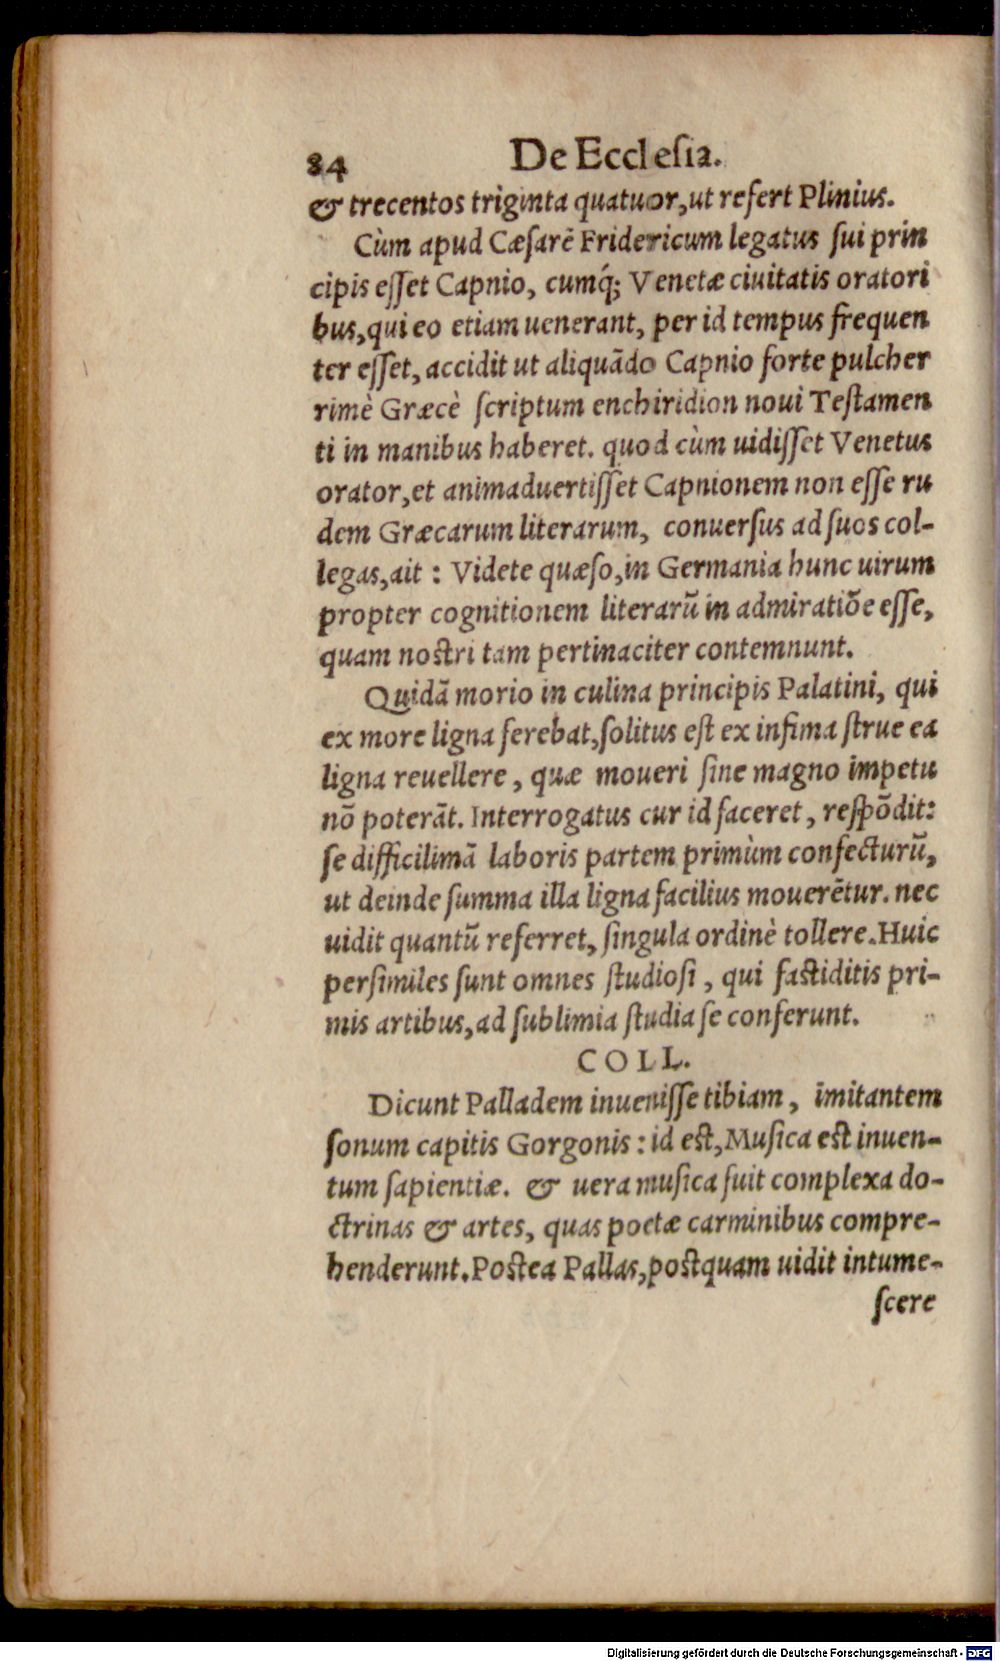 84 De Ecclesia.
& trecentos triginta quatuor, ut refert Plinius.
Cùm apud Cæsarẽ Fridericum legatus sui prin
cipis eſſet Capnio, cumq́; Venetæ ciuitatis oratori
bus, qui eo etiam uenerant, per id tempus frequen
ter eſſet, accidit ut aliquãdo Capnio forte pulcher
rimè Græcè ſcriptum enchiridion noui Teſtamen
ti in manibus haberet. quod cùm uidiſſet Venetus
orator, et animaduertiſſet Capnionem non eſſe ru
dem Græcarum literarum, conuerſus ad ſuos col-
legas, ait: Videte quæſo, in Germania hunc uirum
propter cognitionem literarũ in admiratiõe eſſe,
quam noſtri tam pertinaciter contemnunt.
Quidã morio in culina principis Palatini, qui
ex more ligna ferebat, ſolitus eſt ex infima ſtrue ea
ligna reuellere, quæ moueri ſine magno impetu
nõ poterãt. Interrogatus cur id faceret, reſpõdit:
ſe difficilimã laboris partem primùm confecturũ,
ut deinde ſumma illa ligna facilius mouerẽtur. nec
uidit quantũ referret, ſingula ordinè tollere. Huic
perſimiles ſunt omnes ſtudioſi, qui faſtiditis pri-
mis artibus, ad ſublimia ſtudia ſe conferunt.
COLL.
Dicunt Palladem inueniſſe tibiam, imitantem
ſonum capitis Gorgonis: id eſt, Muſica eſt inuen-
tum ſapientiæ. & uera muſica fuit complexa do-
ctrinas & artes, quas poetæ carminibus compre-
henderunt. Poſtea Pallas, poſtquam uidit intume-
ſcere
Digitalisierung gefördert durch die Deutsche Forschungsgemeinschaft - DFG